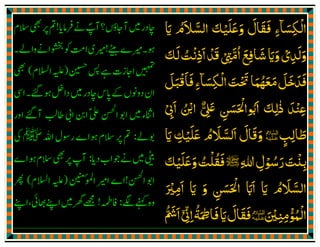 الْكِسَآءِ فَقَالَ وَعَلَيْكَ السَّلَامُ يَا
وَلَدِيْ وَيَا شَافِعَ اُمَّتِيْ قَدْ اَذِنْتُ لَكَ
فَدَخَلَ مَعَهُمَا تَحْتَ الْكِسَآءِ فَاَقْبَلَ
عِنْدَ ذٰلِكَ اَبُو الْحَسَنِ عَلِيُّ ابْنُ اَبِيْ
طَالِبٍ وَقَالَ اَلسَّلَامُ عَلَيْكِ يَا
بِنْتَ رَسُوْلِ اللهِ ﷺ فَقُلْتُ وَعَلَيْكَ
السَّلَامُ يَا اَبَا الْحَسَنِ وَ يَا اَمِيْرَ
الْمُؤْمِنِيْنَ فَقَالَ يَا فَاطِمَةُ اِنِّيْ اَشَمُّ
چادر میں آ جاؤں؟ آپؐ نے فرمایا! تم پر بھی سلام
ہو۔ میرے بیٹے! میری امت کو بخشوانے والے۔
تمہیں اجازت ہے پس حسین (علیہ السلام) بھی
ان دونوں کے پاس چادر میں داخل ہو گئے۔ اسی
اثناء میں ابو الحسن علی ابن ابی طالب آ گئے اور
بولے: تم پر سلام ہو اے رسول اللہ ﷺ کی
بیٹی میں نے جواب دیا: آپ پر بھی سلام ہو اے
ابو الحسن! اے امیر المومنین (علیہ السلام) پھر
وہ کہنے لگے: فاطمہ! مجھے گھر میں اپنے بھائی، اپنے